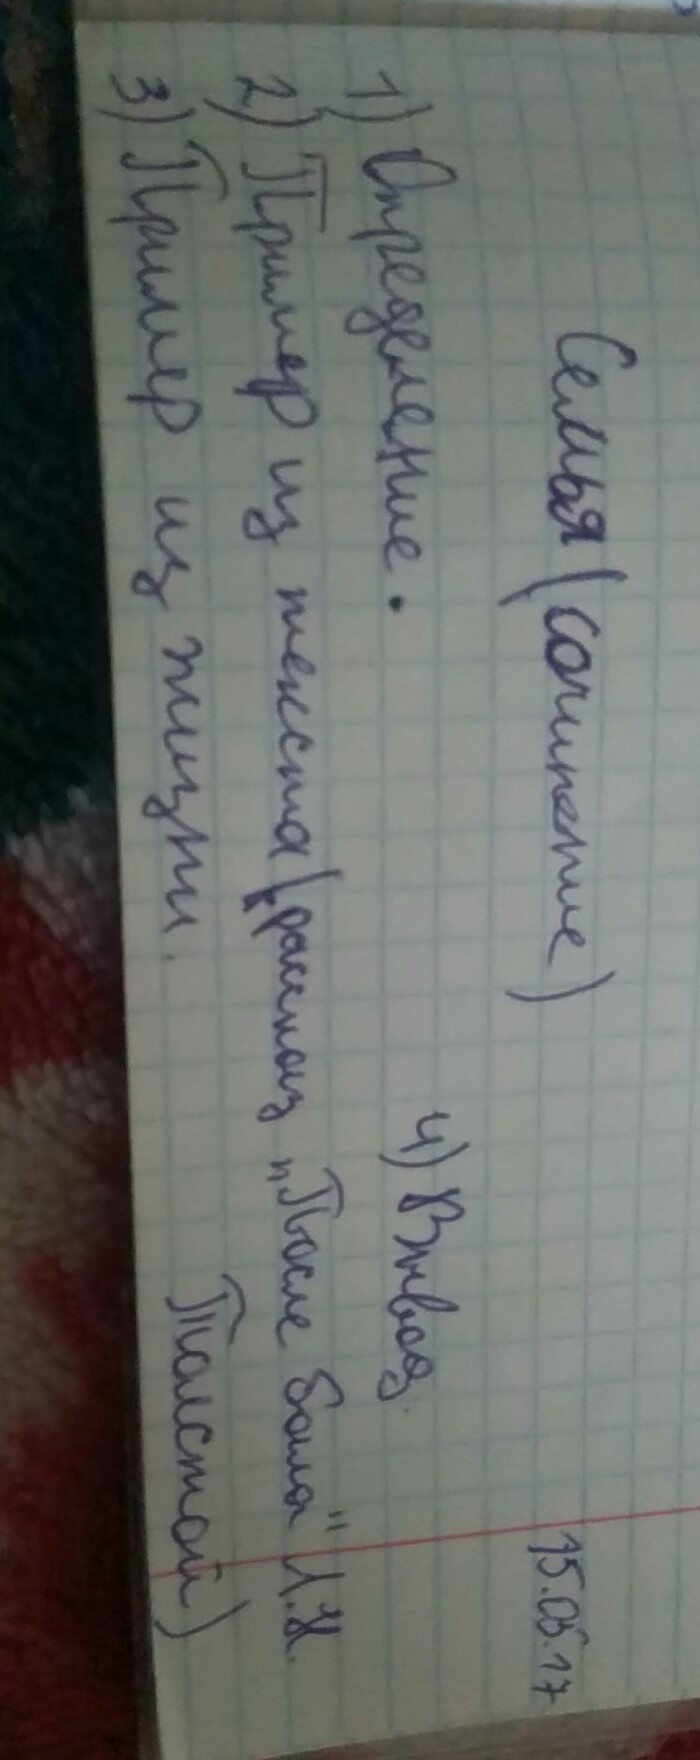 15.05.17
Семья (сочинение)
1) Определение. 4) Вывод.
2) Пример из текста (рассказ „После бала" Л.Н.
Толстой)
3) Пример из жизни.